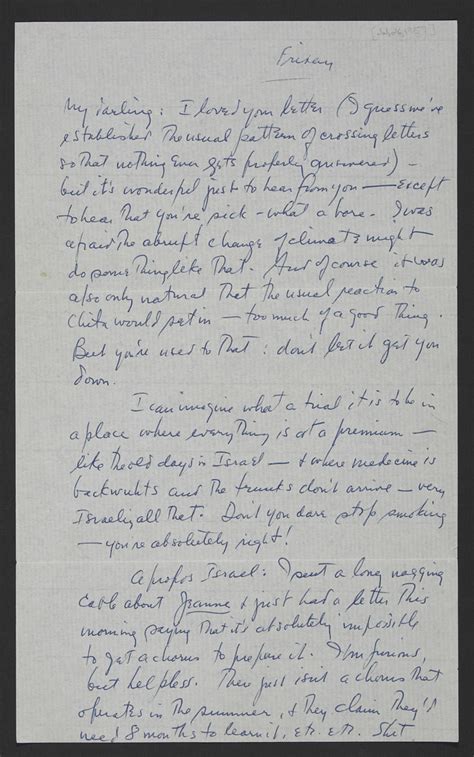 Friday
My darling: I loved your letter (I guess we've
established the usual pattern of crossing letters
so that nothing ever gets properly answered) —
but it's wonderful just to hear from you — except
to hear that you're sick – what a bore. I was
afraid the abrupt change of climate might
do something like that. And of course it was
also only natural that the usual reaction to
Chita would set in — too much of a good thing.
But you're used to that: don't let it get you
down.
I can imagine what a trial it is to be in
a place where everything is at a premium —
like the old days in Israel — & where medicine is
backwards and the trunks don't arrive — very
Israeli, all that. Don't you dare stop smoking
— you're absolutely right!
Apropos Israel: I sent a long nagging
cable about Jeanne & just had a letter this
morning saying that it's absolutely impossible
to get a chorus to prepare it. I'm furious,
but helpless. There just isn't a chorus that
operates in the summer, & they claim they'd
need 8 months to learn it, etc. etc. Shit